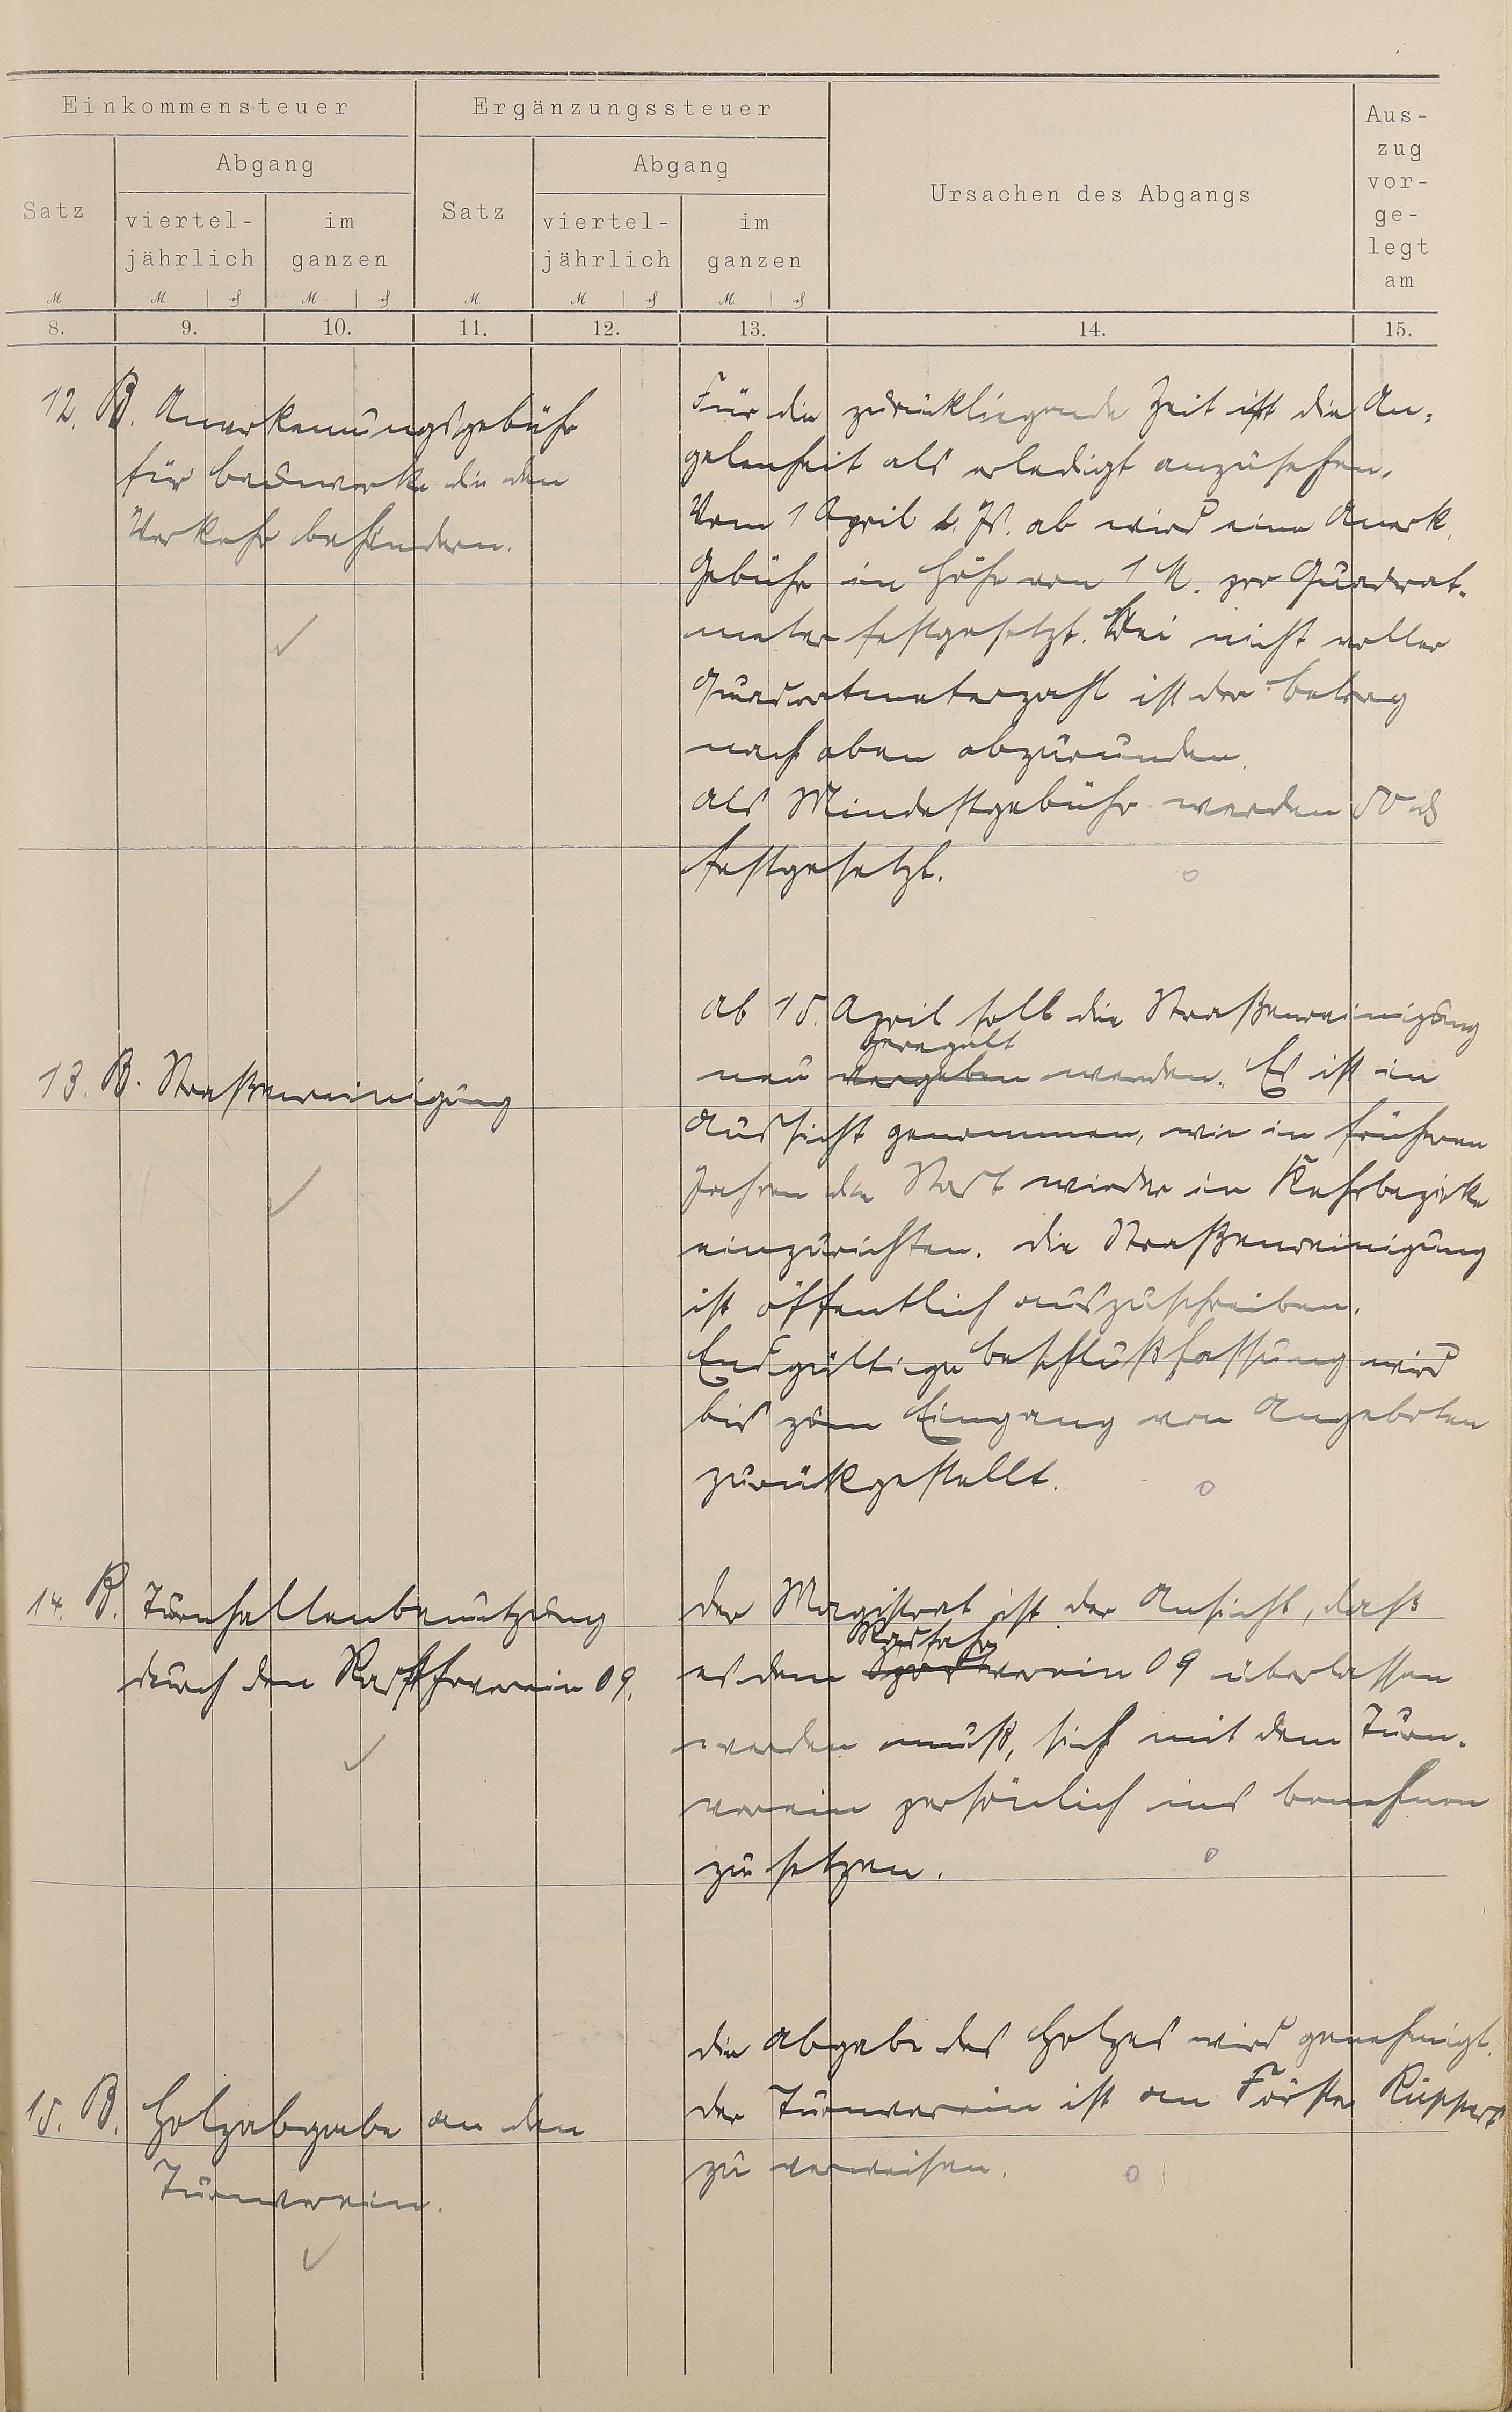 Einkommensteuer
Ergänzungssteuer
Ursachen des Abgangs
Aus-
zug
vor-
ge-
legt
am
Satz
Abgang
viertel-
jährlich
im
ganzen
Satz
Abgang
viertel-
jährlich
im
ganzen
M
M ₰
M ₰
M
M ₰
M ₰
8. 9. 10. 11. 12. 13. 14. 15.
12. B. Anerkennungsgebühr
für Bauwerke die den
Verkehr behindern.
Für die zurückliegende Zeit ist die An-
gelenheit als erledigt anzusehen.
Vom 1 April d. Js. ab wird eine Anerk.
Gebühr in Höhe von 1 M. pro Quadrat-
meter festgesetzt. Bei nicht voller
Quadratmeterzahl ist der Betrag
nach oben abzurunden.
Als Mindestgebühr werden 50 ₰
festgesetzt.
13. B. Straßenreinigung
Ab 15. April soll die Straßenreinigung
geregelt
neu vergeben werden. Es ist in
Aussicht genommen, wie in früheren
Jahren die Stadt wieder in Kehrbezirke
einzurichten. Die Straßenreinigung
ist öffentlich auszuschreiben.
Endgültige Beschlußfassung wird
bis zum Eingang von Angeboten
zurückgestellt.
14. B. Turnhallenbenutzung
durch den Radfahrverein 09.
Der Magistrat ist der Ansicht, daß
Radfahr
es dem Sportverein 09 überlassen
werden muß, sich mit dem Turn-
verein persönlich ins Benehmen
zu setzen.
15. B. Holzabgabe an den
Turnverein.
Die Abgabe des Holzes wird genehmigt.
Der Turnverein ist an Förster Ruppert
zu verweisen.